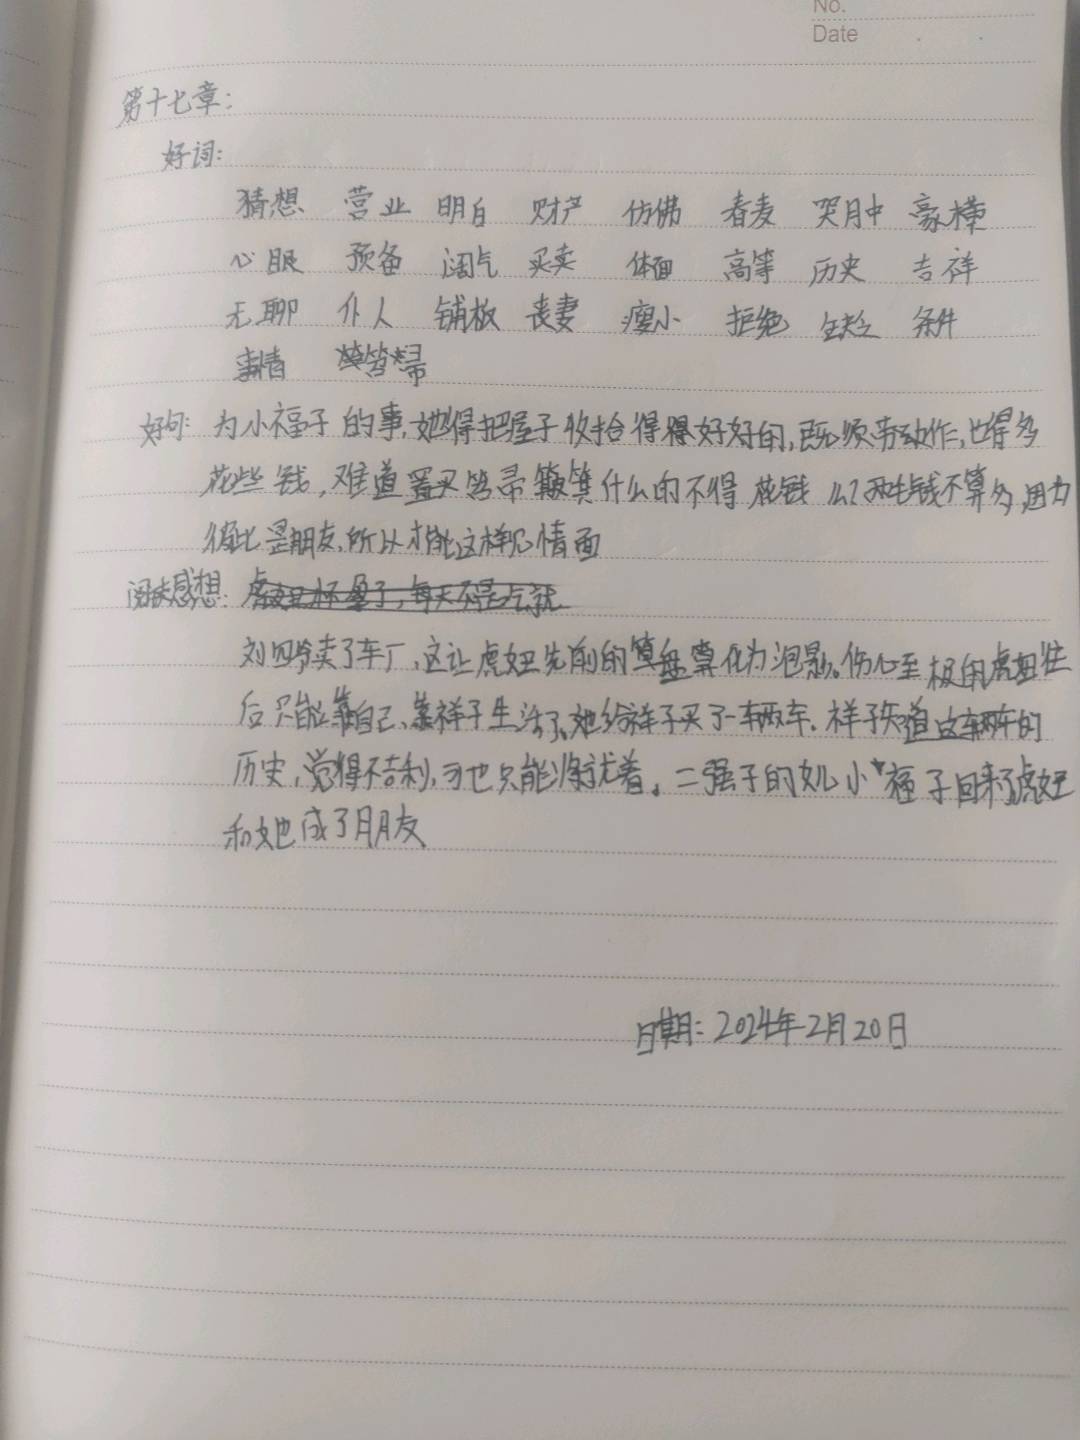 No.
Date
第十七章:
好词:
猜想 营业 明白 财产 仿佛 春麦 哭丧 豪横
心眼 预备 阔气 买卖 体面 高等 历史 吉祥
无聊 仆人 铺板 丧妻 瘦小 拒绝 缺乏 条件
事情 笤帚
好句: 为小福子的事,她得把屋子收拾得好好的,既须劳动作,也得多
花些钱,难道置买笤帚簸箕什么的不得花钱么?两毛钱不算多,因为
彼此是朋友,所以才能这样见情面
阅读感想:
刘四爷卖了车厂,这让虎妞先前的算盘算化为泡影。伤心至极的虎妞往
后只能靠自己、靠祥子生活了、她给祥子买了一辆车.祥子知道这辆车的
历史,觉得不吉利,可也只能将就着。二强子的女儿小福子回来了虎妞
和她成了朋友
日期:2024年2月20日